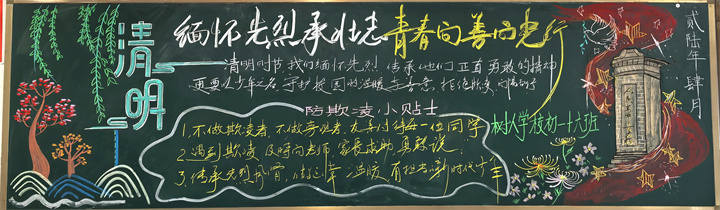 清明
缅怀先烈承壮志 青春向善向光行
清明时节,我们缅怀先烈,传承他们正直勇敢的精神
更要以少年之名,守护校园的温暖与善意,拒绝欺凌
防欺凌小贴士
1.不做欺凌者,不做旁观者,友善对待每一位同学
2.遇到欺凌及时向老师,家长求助,莫默
3.传承先烈风骨,做 温暖 有担当新时代少年
树人学校初一十六班
贰陆年肆月